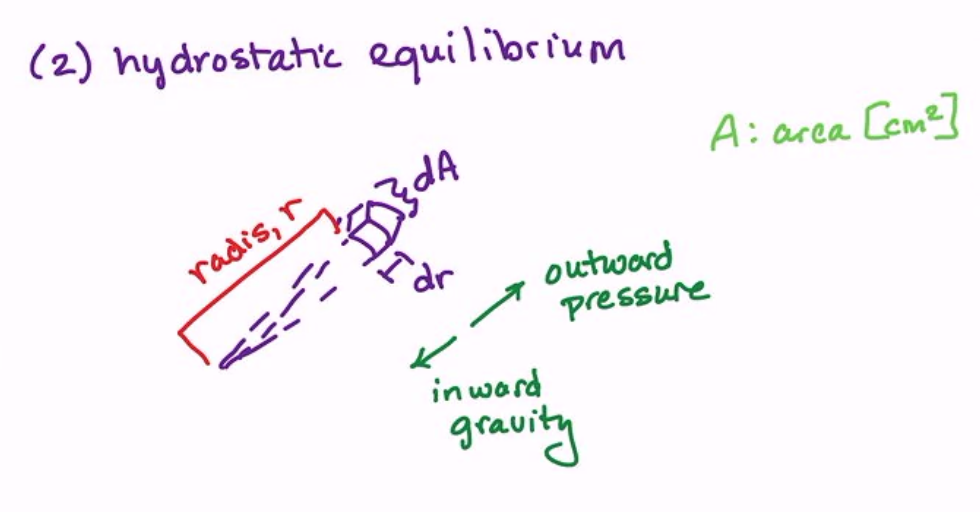 (2) hydrostatic equilibrium
A: area [cm²]
dA
radis, r
dr
outward
pressure
inward
gravity